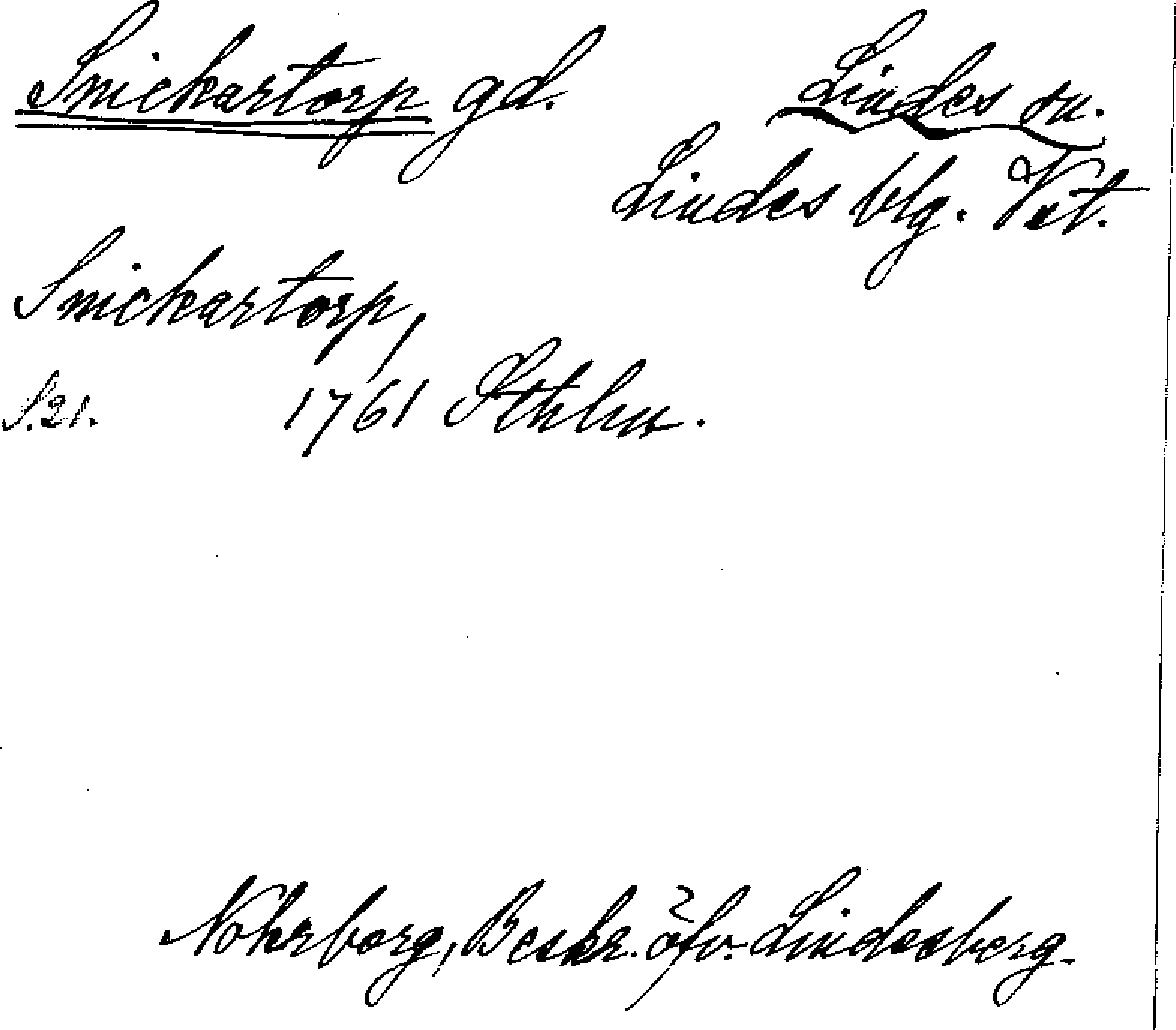 Snickartorp gd. Lindes sn.
Lindes blg. Vst.
Snickartorp,
S. 21. 1761 Sthlm.
Nohrborg, Beskr. öfv. Lindesberg.